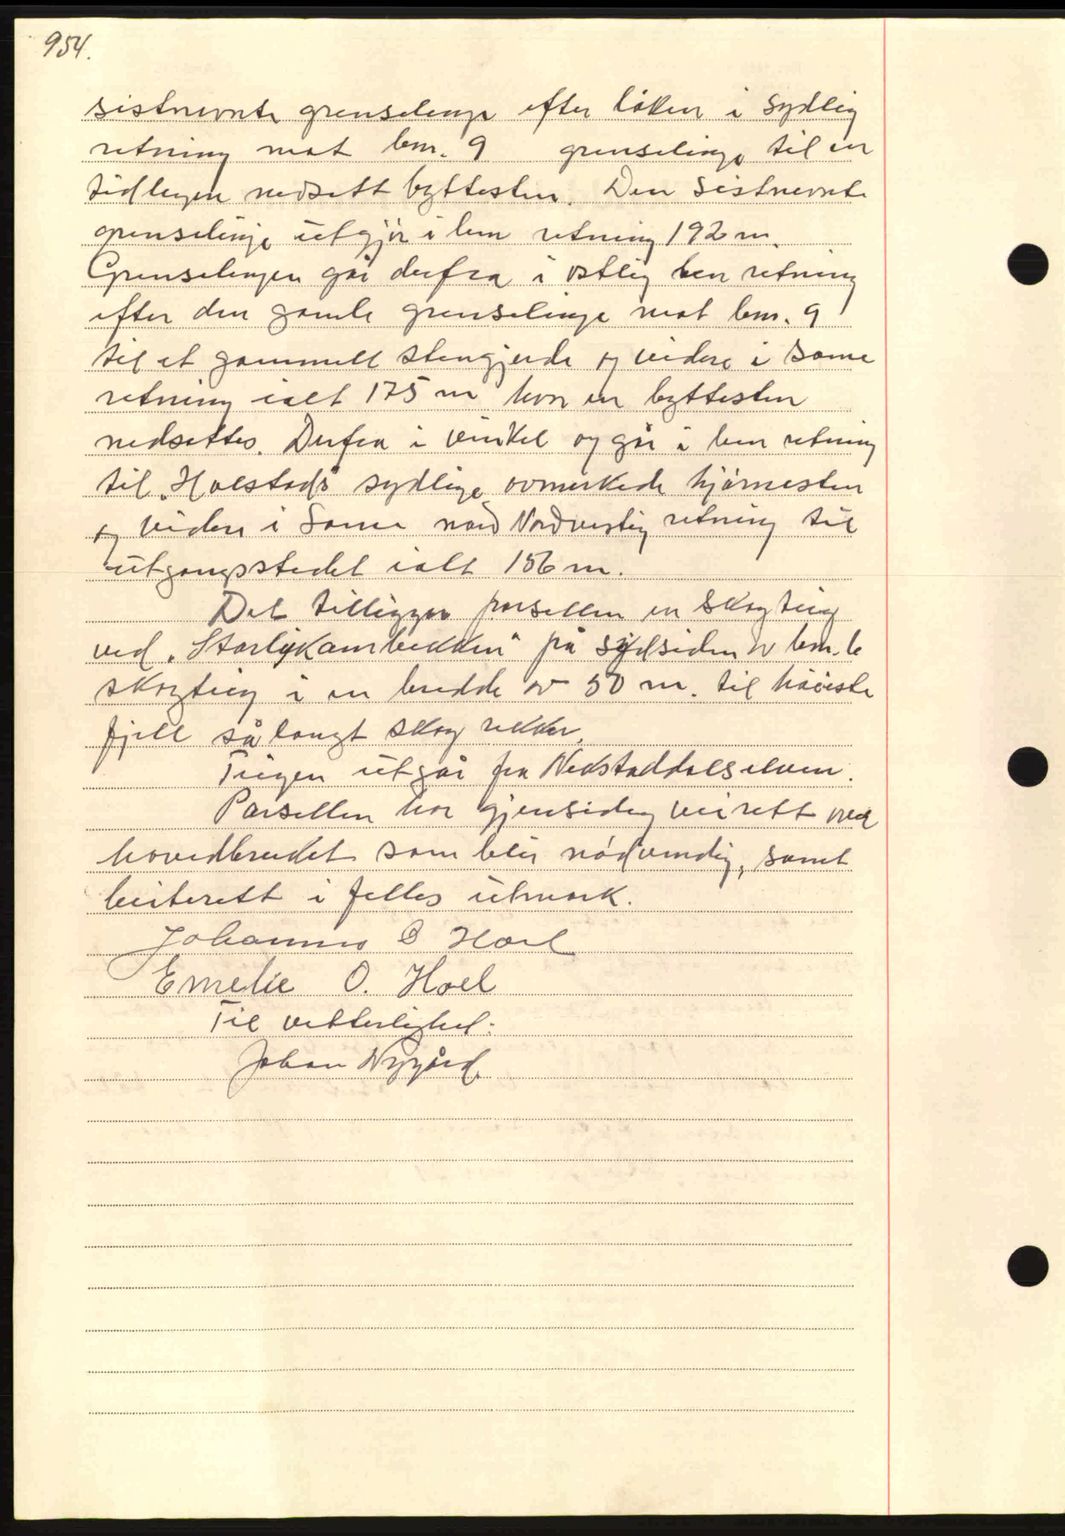 954.
sistnevnte grenselinje efter løken i sydlig
retning mot bnr. 9 grenselinje til en
tidligen nedsatt byttesten. Den sistnevnte
grenselinje utgjør i ben retning 192 m.
Grenselinjen går derfra i østlig ben retning
efter den gamle grenselinje mot bnr. 9
til et gammelt stengjerde og videre i same
retning ialt 175 m hvor en byttesten
nedsettes. Derfra i vinkel og går i ben retning
til "Holstads sydlige avmerkede hjørnesten
og videre i same nord Nordvestlig retning til
utgangsstedet ialt 156 m.
Det tilligger parsellen en skogteig
ved "Storlykambekken" på sydsiden av bnr. 6
skogteig i en bredde av 50 m. til høieste
fjell så langt skog rekker.
Teigen utgår fra Nedstaddalselven.
Parsellen har gjensidig veirett over
hovedbruket som blir nødvendig, samt
beiterett i felles utmark.
Johannes O Hoel
Emelie O. Hoel
Til vitterlighet:
Johan Nygård